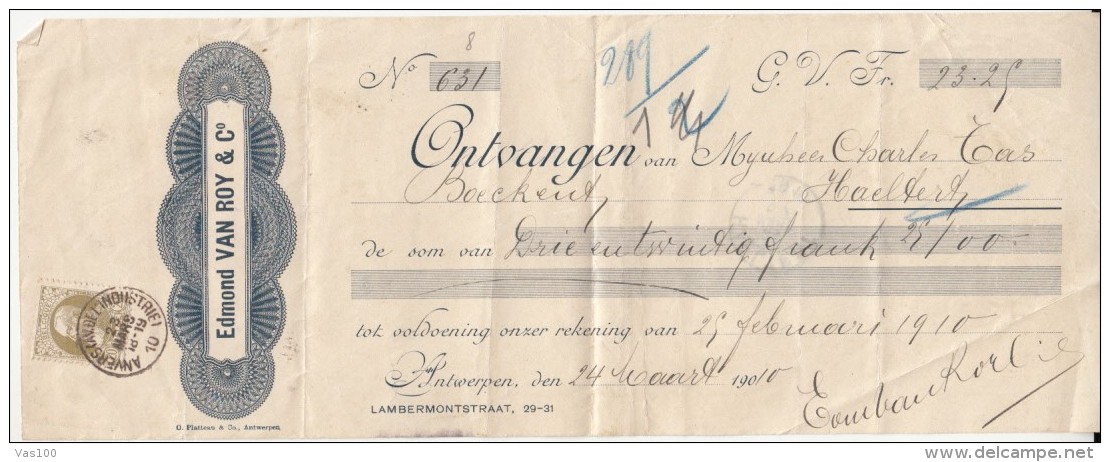 8
Nº 631
209
G. V. Fr. 23.25
1
Ontvangen van Mynheer Charles Tas
Boeckent, Haeltert
de som van Drie en twintig frank 25/00
tot voldoening onzer rekening van 25 februari 1910
Antwerpen, den 24 Maart 1910
LAMBERMONTSTRAAT, 29-31
Edmond VAN ROY & Cº
G. Platteau & Co., Antwerpen
ANVERS 10
23
MARS
18-19
Vas100
www.delcampe.net